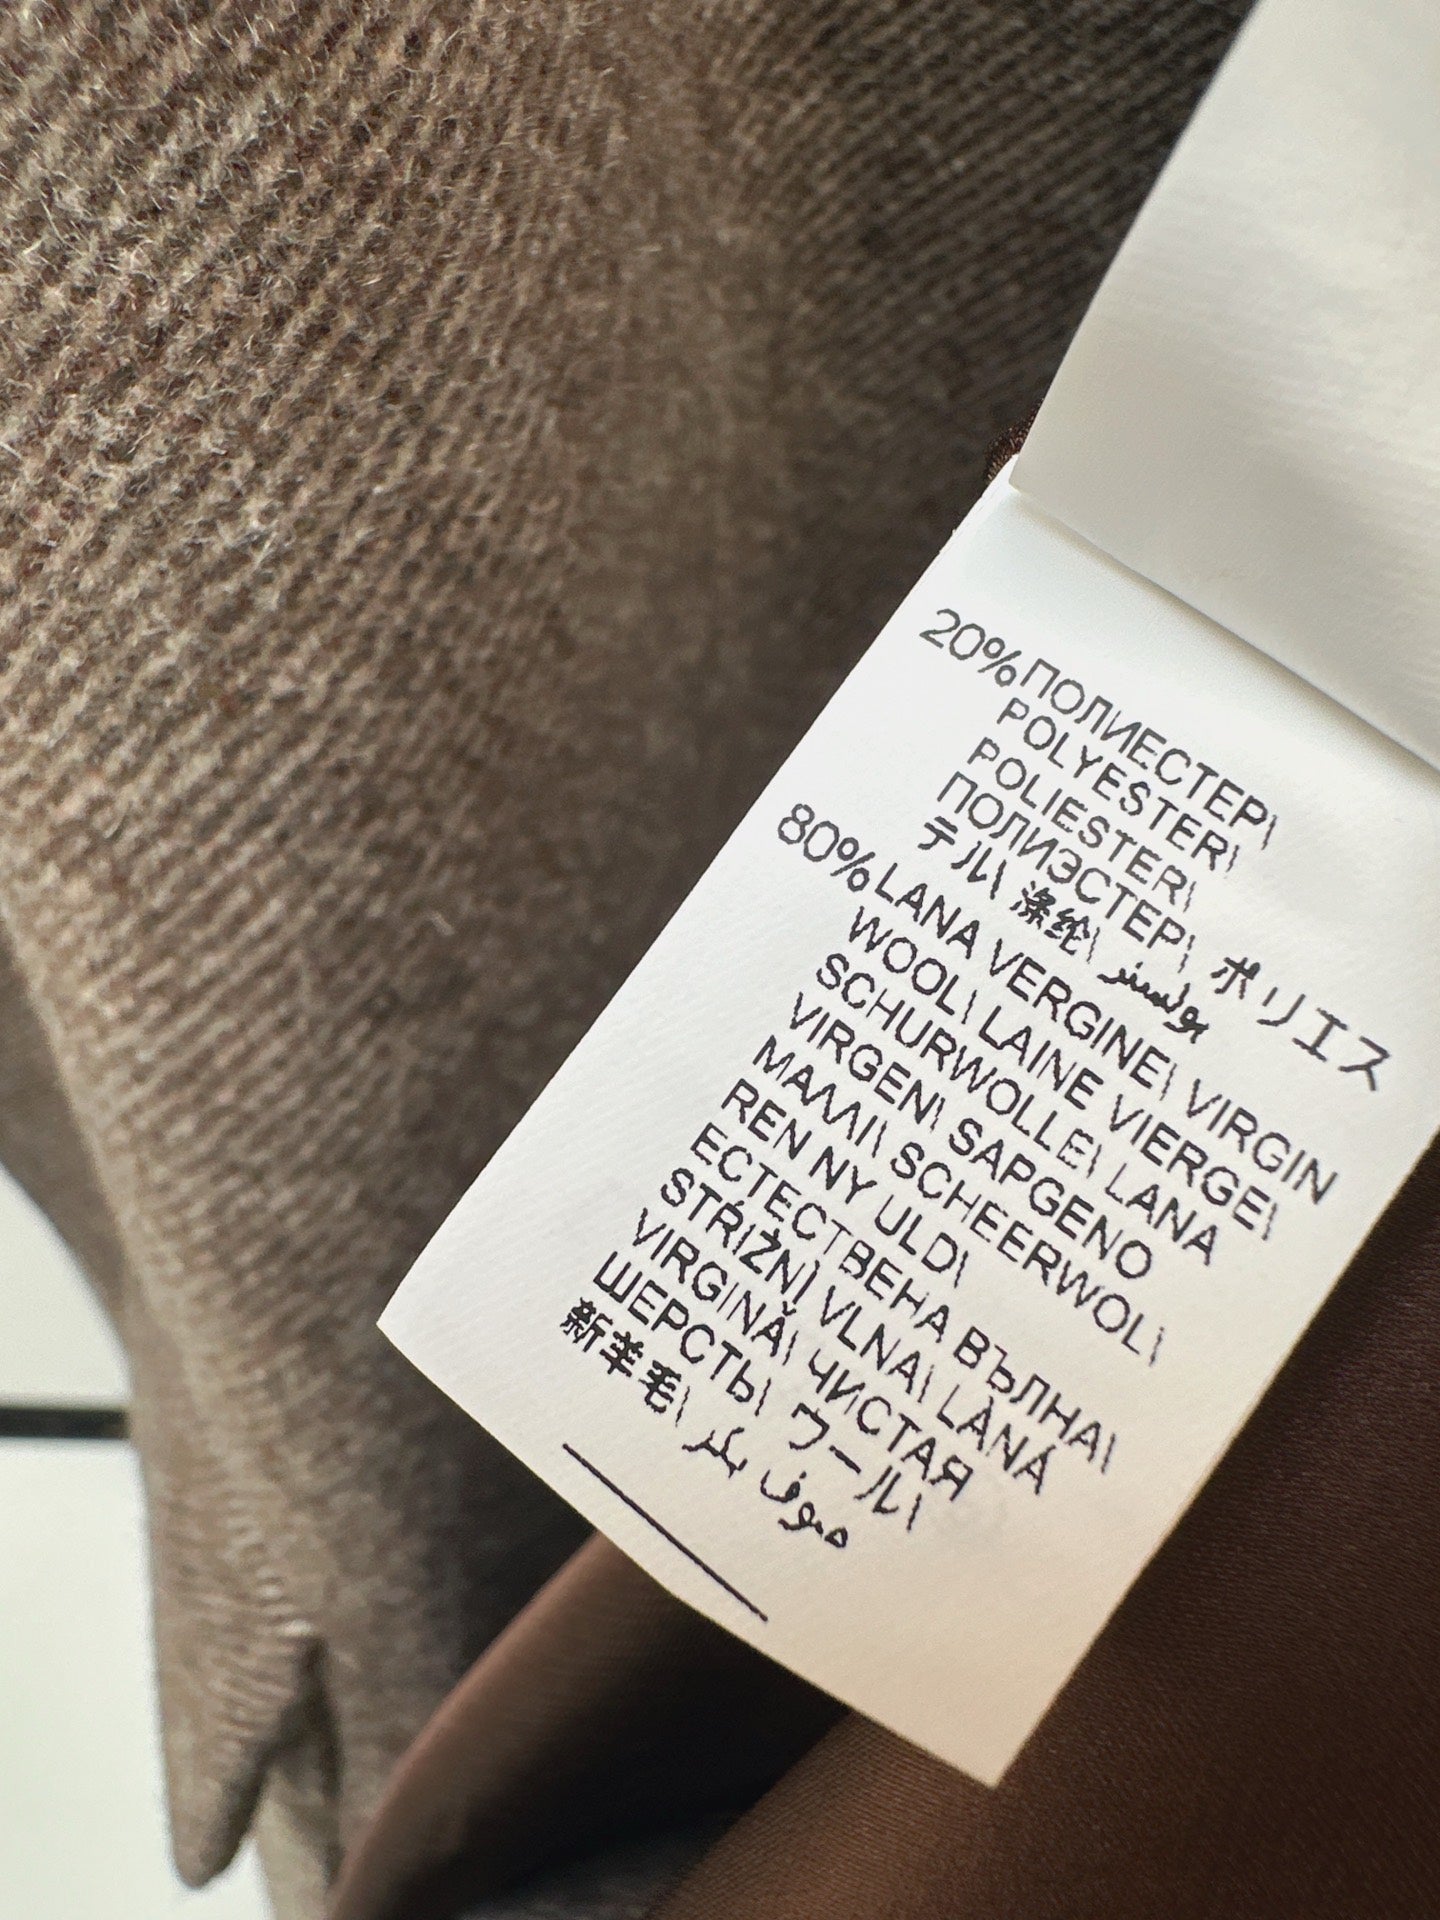 20%ПОЛИЕСТЕР\
POLYESTER\
POLIESTER\
ПОЛИЭСТЕР\ ポリエス
テル\ 涤纶\ بولستر
80%LANA VERGINE\ VIRGIN
WOOL\ LAINE VIERGE\
SCHURWOLLE\ LANA
VIRGEN\ SAPGENO
ΜΑΛΛΙ\ SCHEERWOL\
REN NY ULD\
ЕСТЕСТВЕНА ВЪЛНА\
STŘIŽNÍ VLNA\ LÂNÁ
VIRGINĂ\ ЧИСТАЯ
ШЕРСТЬ\ ウール\
新羊毛\ صوف بكر